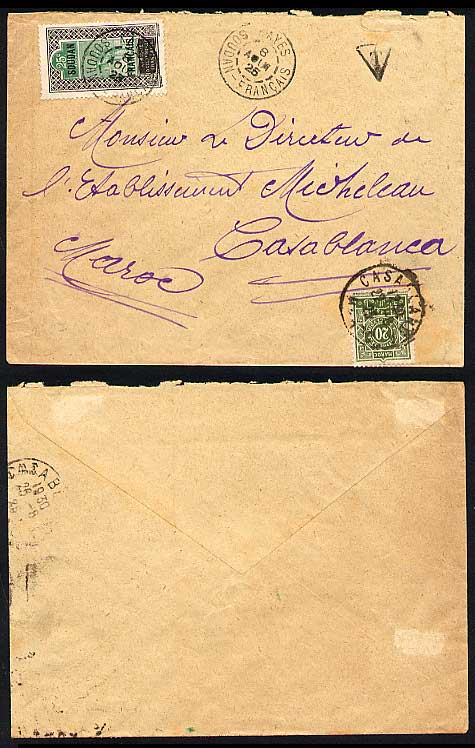 25c SOUDAN FRANÇAIS
KAYES
6
AOUT
25
SOUDAN-FRANÇAIS
T
Monsieur Le Directeur de
l'Etablissement Micheleau
Casablanca
Maroc
CASABLANCA
20
MAROC
CASABL
19 30
26 -8